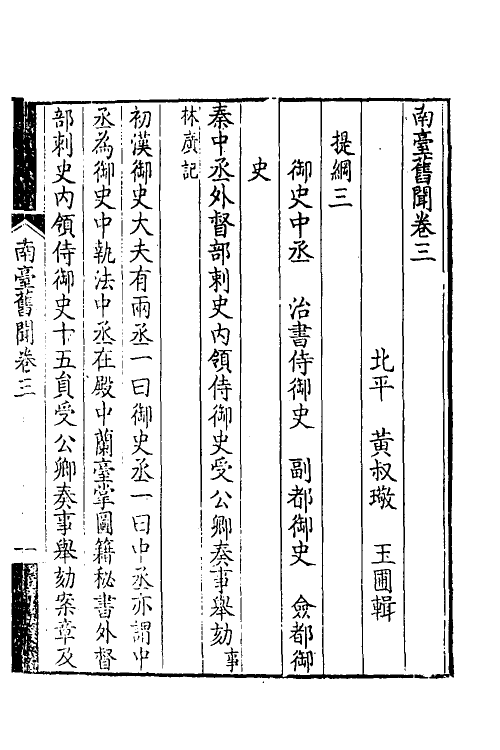 南臺舊聞卷三
北平　黃叔璥　玉圃輯
提綱三
御史中丞　治書侍御史　副都御史　僉都御
史
秦中丞外督部刺史內領侍御史受公卿奏事舉劾事
林廣記
初漢御史大夫有兩丞一曰御史丞一曰中丞亦謂中
丞為御史中執法中丞在殿中蘭臺掌圖籍秘書外督
部刺史內領侍御史十五員受公卿奏事舉劾案章及
南臺舊聞卷三
一